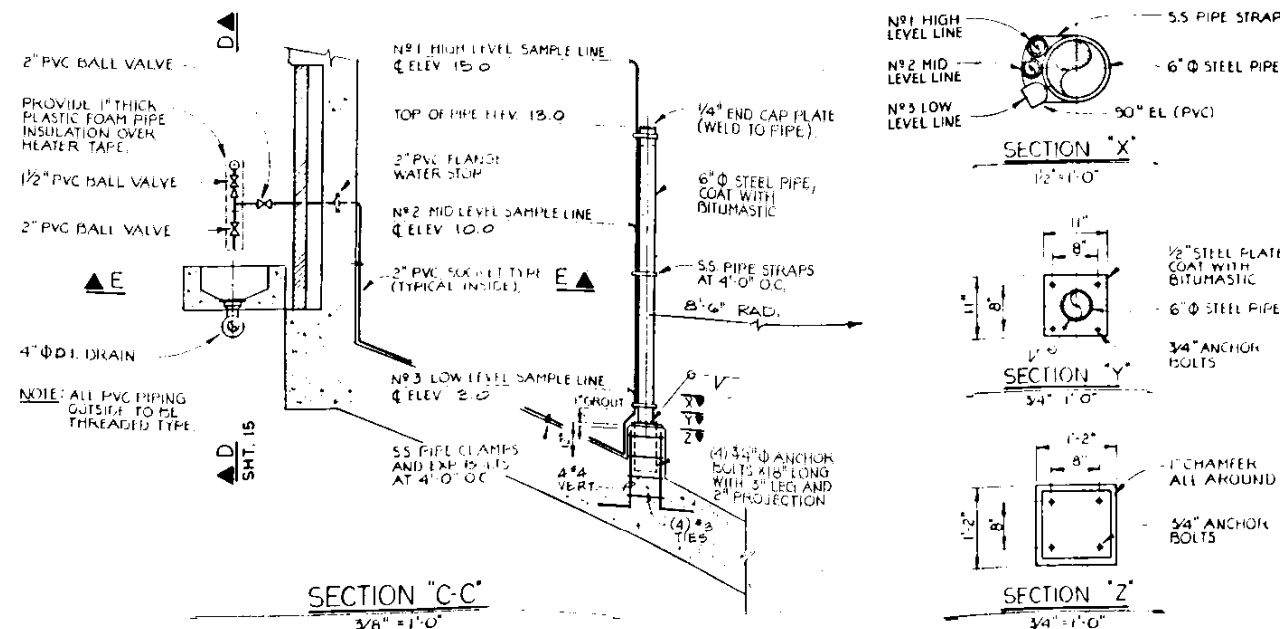 D
2" PVC BALL VALVE
PROVIDE 1" THICK
PLASTIC FOAM PIPE
INSULATION OVER
HEATER TAPE.
1½" PVC BALL VALVE
2" PVC BALL VALVE
E
4" Φ D.I. DRAIN
NOTE: ALL PVC PIPING
OUTSIDE TO BE
THREADED TYPE.
D
SHT. 15
Nº1 HIGH LEVEL SAMPLE LINE
℄ ELEV 15.0
TOP OF PIPE ELEV. 13.0
2" PVC FLANGE
WATER STOP
Nº2 MID LEVEL SAMPLE LINE
℄ ELEV 10.0
2" PVC SOCKET TYPE
(TYPICAL INSIDE)
E
Nº3 LOW LEVEL SAMPLE LINE
℄ ELEV
1" GROUT
S.S. PIPE CLAMPS
AND EXP. BOLTS
AT 4'-0" O.C.
4 #4
VERT.
(4) #3
TIES
1/4" END CAP PLATE
(WELD TO PIPE)
6" Φ STEEL PIPE,
COAT WITH
BITUMASTIC
S.S. PIPE STRAPS
AT 4'-0" O.C.
8'-6" RAD.
6 V
X
Y
Z
(4) 3/4" Φ ANCHOR
BOLTS X 18" LONG
WITH 3" LEG AND
2" PROJECTION
SECTION "C-C"
3/8" = 1'-0"
Nº1 HIGH
LEVEL LINE
Nº2 MID
LEVEL LINE
Nº3 LOW
LEVEL LINE
S.S PIPE STRAP
6" Φ STEEL PIPE
90° EL (PVC)
SECTION "X"
1½"=1'-0"
11"
8"
11"
8"
½" STEEL PLATE
COAT WITH
BITUMASTIC
6" Φ STEEL PIPE
3/4" ANCHOR
BOLTS
V 6
SECTION "Y"
3/4" 1'-0"
1'-2"
8"
1'-2"
8"
1" CHAMFER
ALL AROUND
3/4" ANCHOR
BOLTS
SECTION "Z"
3/4"=1'-0"